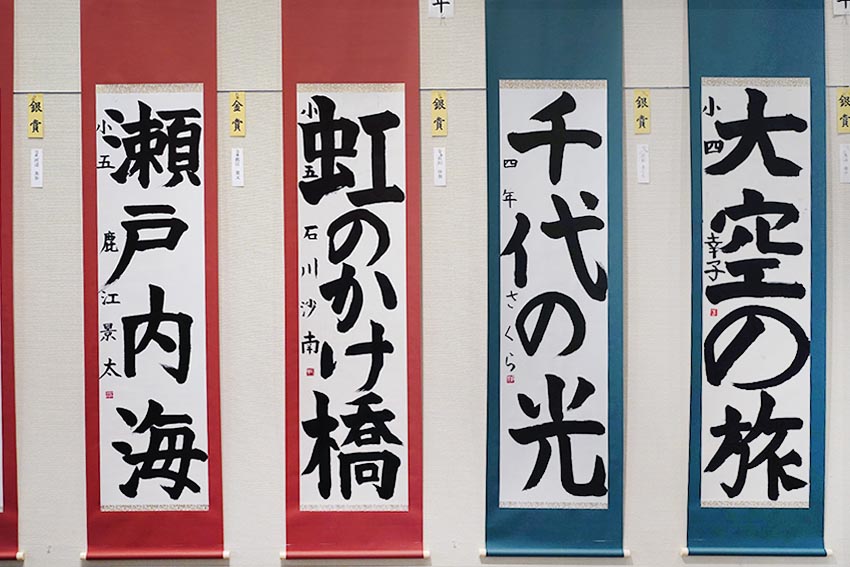 銀賞
大空の旅
小四 幸子
銀賞
千代の光
四年 さくら
銀賞
虹のかけ橋
小五 石川沙南
金賞
瀬戸内海
小五 鹿江景太
銀賞